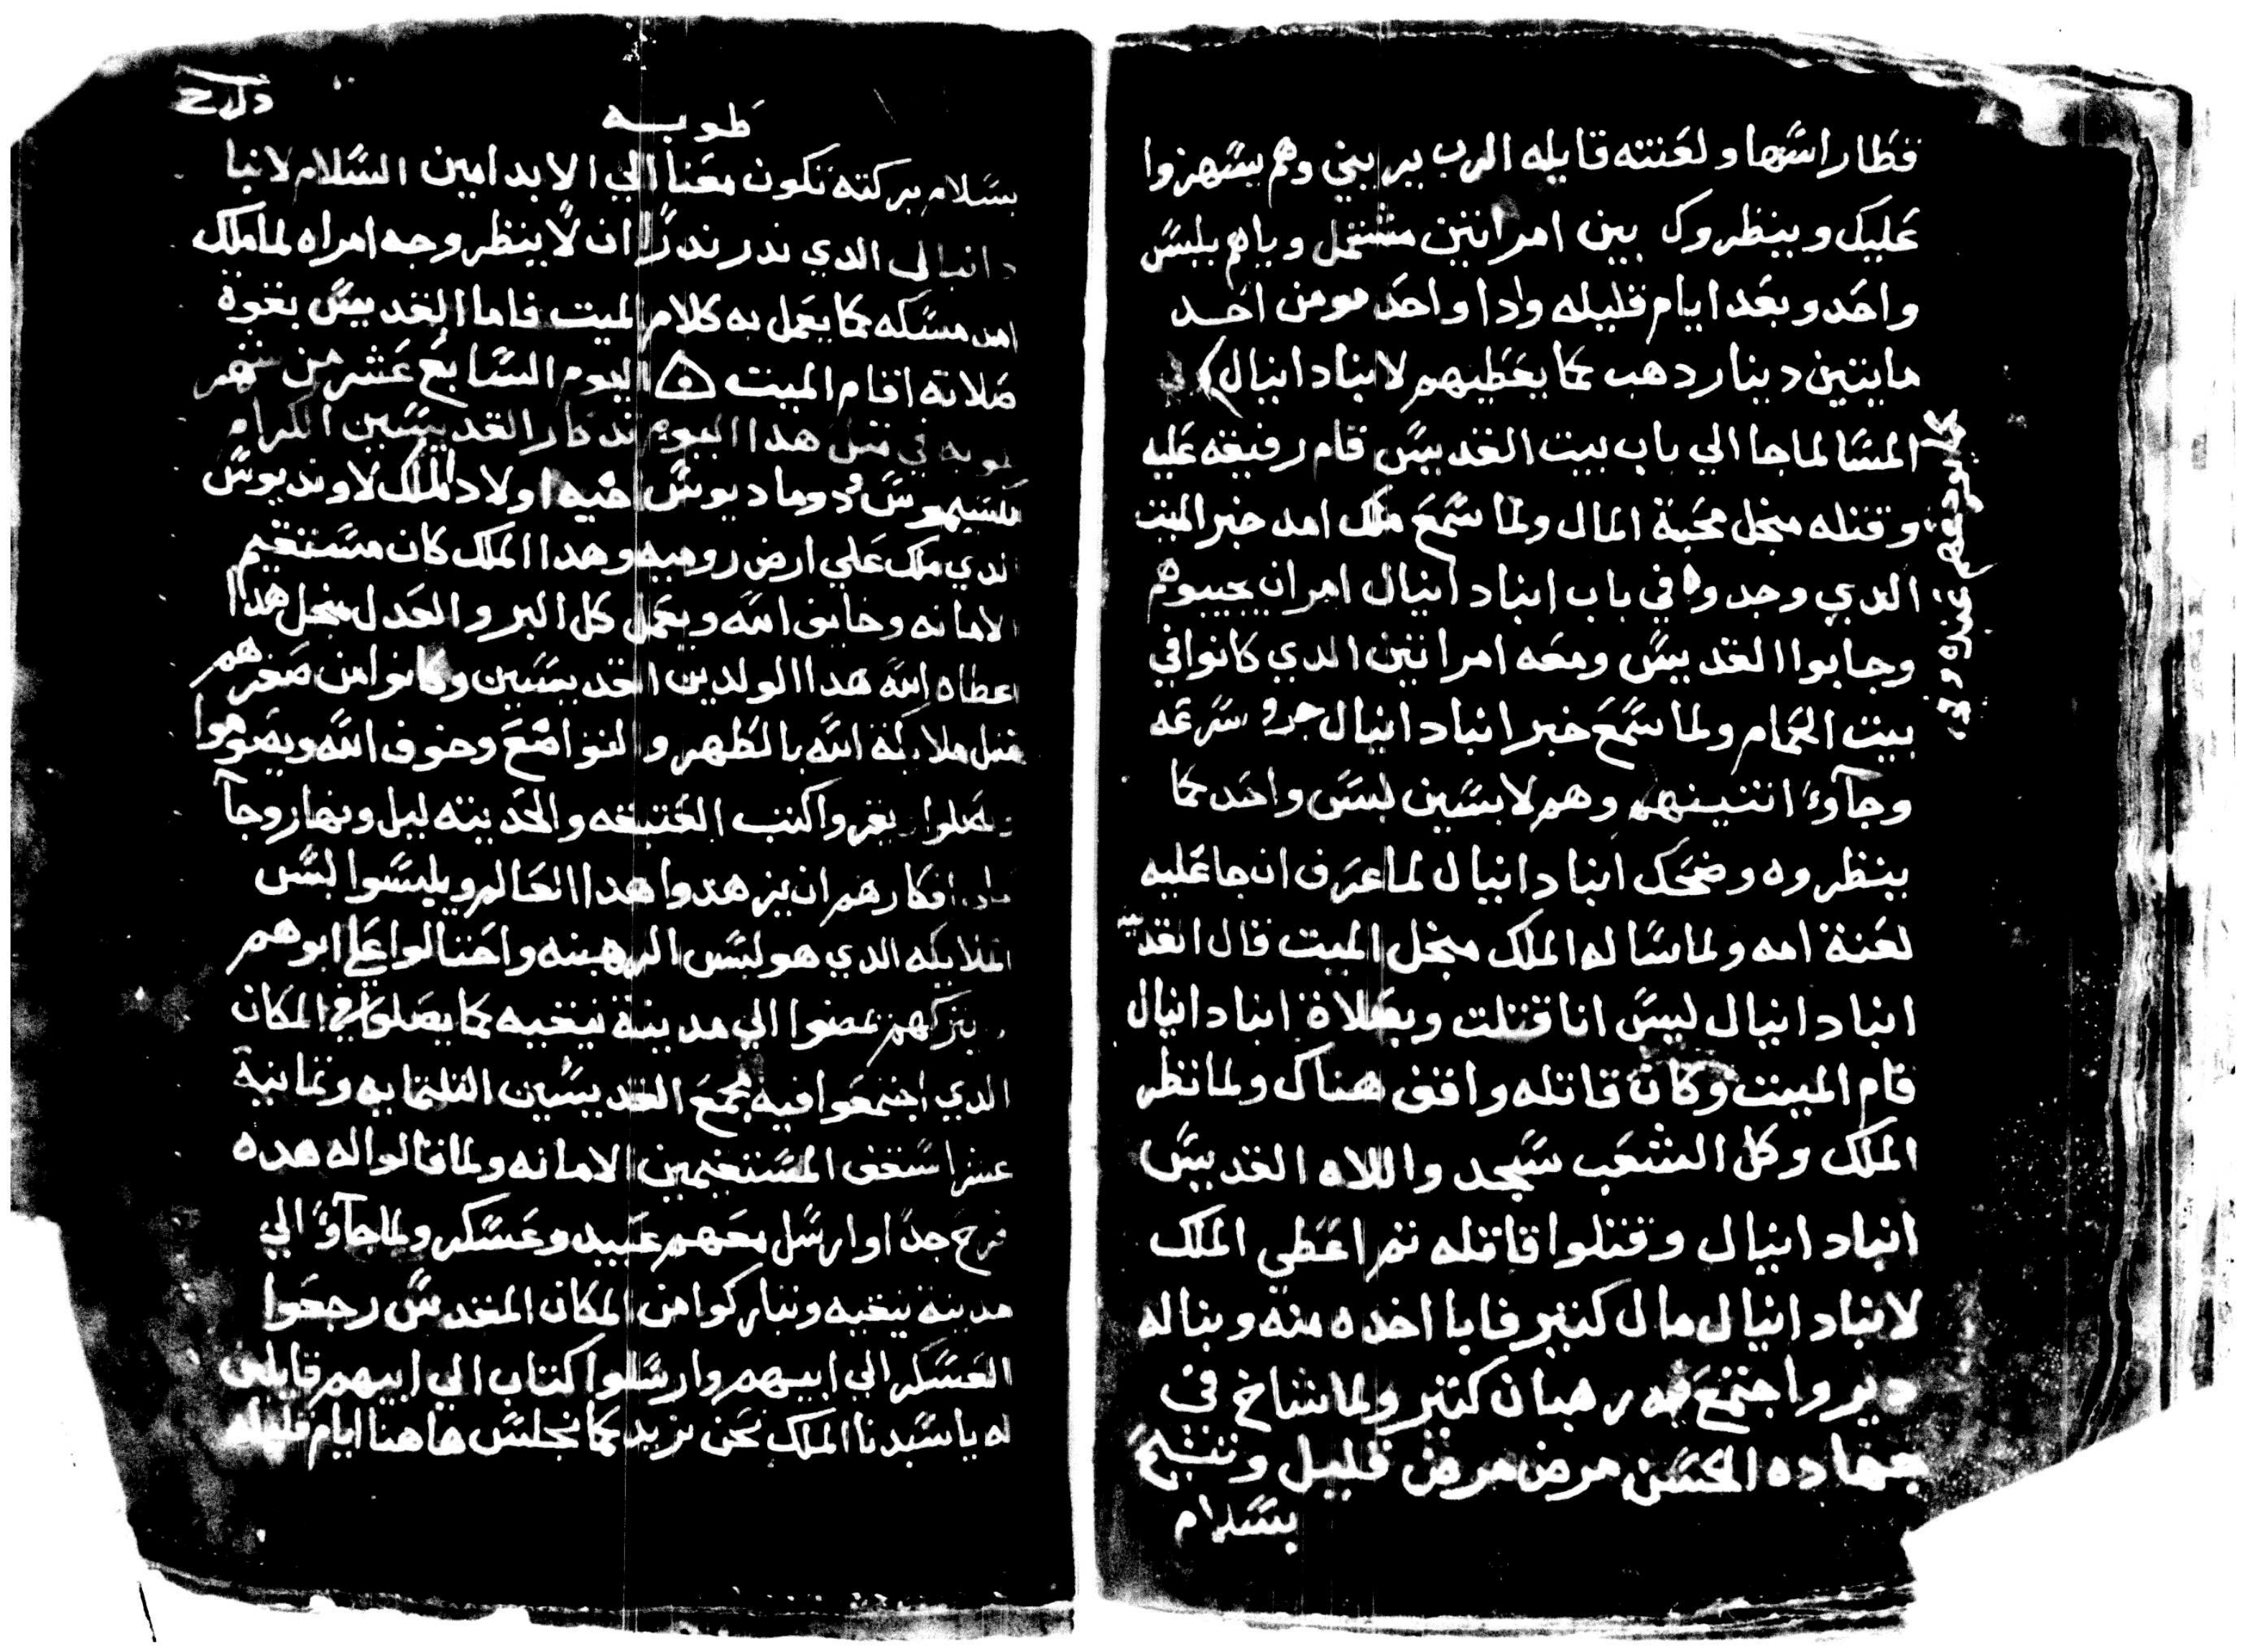 فطار راسها ولعنته قايله الرب يريني وهم يستهزوا
عليك وينظروك بين امراتين مشتمل وياهم بلبس
واحد وبعد ايام قليله وادا واحد مومن اخد
مايتين دينار دهب كما يعطيهم لانبا دانيال في
المسا لما جا الي باب بيت القديس قام رفيقه عليه
وقتله منجل محبة المال ولما سمع ملك امد خبر الميت
الدي وجدوه في باب انبا دانيال امر ان يجيبوه
وجابوا القديس ومعه امراتين الدي كانوا في
بيت الحمام ولما سمع خبر انبا دانيال سرعه
وجآوء اتنينهم وهم لابسين لبس واحد كما
ينظروه وضحك انبا دانيال لما عرف ان جا عليه
لعنة امه ولما ساله الملك منجل الميت قال القديس
انبا دانيال ليس انا قتلت وبصلاة انبا دانيال
قام الميت وكان قاتله واقف هناك ولما نظر
الملك وكل الشعب سجد واللاه القديس
انبا دانيال وقتلوا قاتله تم اعطي الملك
لانبا دانيال مال كتير فابا اخده منه وبنا له
دير واجتمع فيه رهبان كتير ولما شاخ في
جهاده الحسن مرض مرض قليل وتنيح
بسلام
طوبه
بسلام بركته تكون معنا الي الابد امين السلام لانبا
دانيال الدي ندر ندرًا ان لا ينظر وجه امراه لما ملك
امد مسكه كما يعمل به كلام الميت فاما القديس بقوة
صلاته اقام الميت اليوم السابع عشر من شهر
طوبه في متل هدا اليوم تدكار القديسين الكرام
مكسيموس ودوماديوس اخيه اولاد الملك لاونديوس
الدي ملك علي ارض روميه وهدا الملك كان مستقيم
الامانه وخايف الله ويعمل كل البر والعدل منجل هدا
اعطاه الله هدا الولدين القديسين وكانوا من صغرهم
متل ملايكة الله بالطهر والتواضع وخوف الله ويصوموا
ويصلوا ويقروا كتب العتيقه والحديته ليل ونهار وجآ
افكارهم ان يزهدوا هدا العالم ويلبسوا لبس
الملايكه الدي هو لبس الرهبنه واحتالوا علي ابوهم
يتركهم يمضوا الي مدينة نيقيه كما يصلوا في المكان
الدي اجتمعوا فيه مجمع القديسين التلتمايه وتمانية
عشر اسقف المستقيمين الامانه ولما قالوا له هده
فرح جدًا وارسل معهم عبيد وعسكر ولما جآوًا الي
مدينة نيقيه وتباركوا من المكان المقدس رجعوا
العسكر الي ابيهم وارسلوا كتاب الي ابيهم قايلين
له يا سيدنا الملك نحن نريد كما نجلس هاهنا ايام قليله